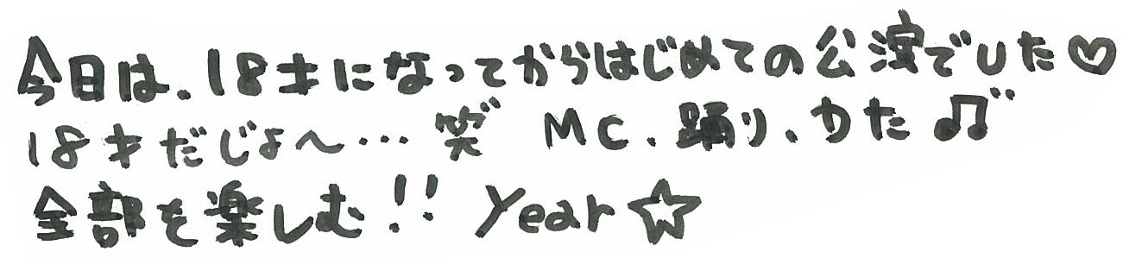 今日は、18才になってからはじめての公演でした♡
18才だじょ〜… 笑" MC、踊り、うた♫"
全部を楽しむ!! Year☆